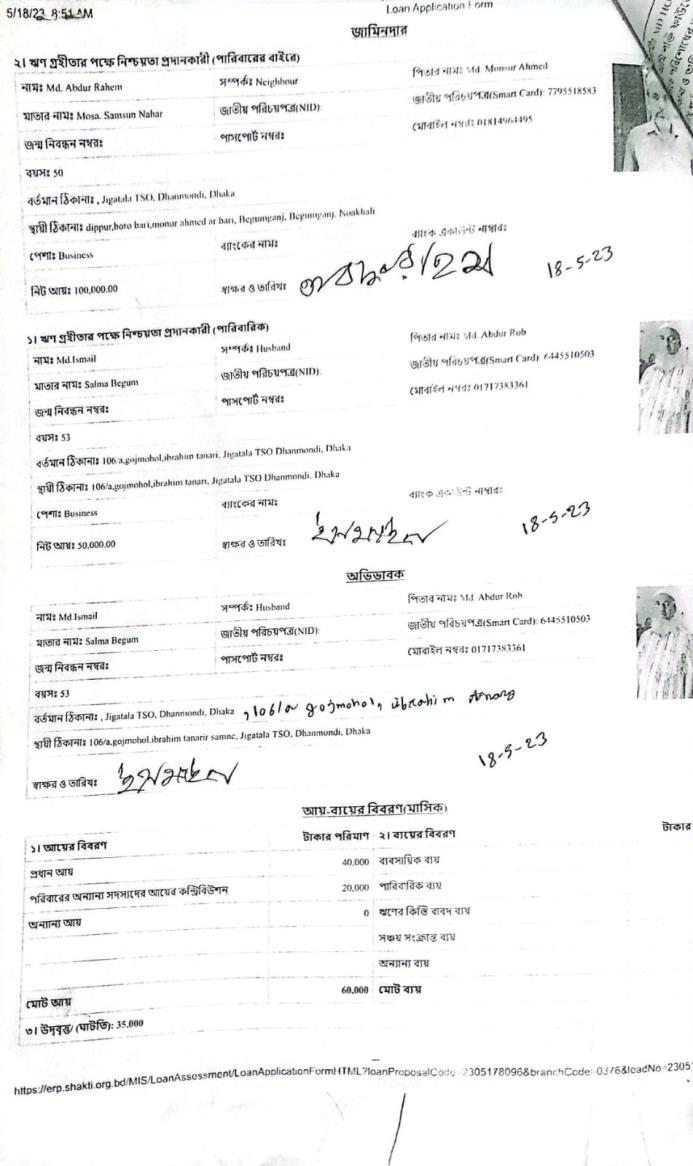 5/18/23, 8:51 AM
Loan Application Form
জামিনদার
২। ঋণ গ্রহীতার পক্ষে নিশ্চয়তা প্রদানকারী (পারিবারের বাইরে)
নাম: Md. Abdur Rahem সম্পর্ক: Neighbour পিতার নাম: Md. Monsur Ahmed
মাতার নাম: Mosa. Samsun Nahar জাতীয় পরিচয়পত্র(NID): জাতীয় পরিচয়পত্র(Smart Card): 7795518583
জন্ম নিবন্ধন নম্বর: পাসপোর্ট নম্বর: মোবাইল নম্বর: 01814964495
বয়স: 50
বর্তমান ঠিকানা: , Jigatala TSO, Dhanmondi, Dhaka
স্থায়ী ঠিকানা: dippur,boro bari,monur ahmed ar bari, Begumganj, Begumganj, Noakhali
পেশা: Business ব্যাংকের নাম: ব্যাংক একাউন্ট নাম্বার:
নিট আয়: 100,000.00 স্বাক্ষর ও তারিখ: 18-5-23
১। ঋণ গ্রহীতার পক্ষে নিশ্চয়তা প্রদানকারী (পারিবারিক)
নাম: Md.Ismail সম্পর্ক: Husband পিতার নাম: Md. Abdur Rob
মাতার নাম: Salma Begum জাতীয় পরিচয়পত্র(NID): জাতীয় পরিচয়পত্র(Smart Card): 6445510503
জন্ম নিবন্ধন নম্বর: পাসপোর্ট নম্বর: মোবাইল নম্বর: 01717383361
বয়স: 53
বর্তমান ঠিকানা: 106/a,gojmohol,ibrahim tanari, Jigatala TSO Dhanmondi, Dhaka
স্থায়ী ঠিকানা: 106/a,gojmohol,ibrahim tanari, Jigatala TSO Dhanmondi, Dhaka
পেশা: Business ব্যাংকের নাম: ব্যাংক একাউন্ট নাম্বার:
নিট আয়: 50,000.00 স্বাক্ষর ও তারিখ: ইসমাইল 18-5-23
অভিভাবক
নাম: Md Ismail সম্পর্ক: Husband পিতার নাম: Md. Abdur Rob
মাতার নাম: Salma Begum জাতীয় পরিচয়পত্র(NID): জাতীয় পরিচয়পত্র(Smart Card): 6445510503
জন্ম নিবন্ধন নম্বর: পাসপোর্ট নম্বর: মোবাইল নম্বর: 01717383361
বয়স: 53
বর্তমান ঠিকানা: , Jigatala TSO, Dhanmondi, Dhaka , 106/a gojmohol, ibrahim
স্থায়ী ঠিকানা: 106/a,gojmohol,ibrahim tanarir samne, Jigatala TSO, Dhanmondi, Dhaka
স্বাক্ষর ও তারিখ: ইসমাইল 18-5-23
আয়-ব্যয়ের বিবরণ(মাসিক)
১। আয়ের বিবরণ টাকার পরিমাণ ২। ব্যয়ের বিবরণ টাকার
প্রধান আয় 40,000 ব্যবসায়িক ব্যয়
পরিবারের অন্যান্য সদস্যদের আয়ের কন্ট্রিবিউশন 20,000 পারিবারিক ব্যয়
অন্যান্য আয় 0 ঋণের কিস্তি বাবদ ব্যয়
সঞ্চয় সংক্রান্ত ব্যয়
অন্যান্য ব্যয়
মোট আয় 60,000 মোট ব্যয়
৩। উদ্বৃত্ত/ (ঘাটতি): 35,000
https://erp.shakti.org.bd/MIS/LoanAssessment/LoanApplicationFormHTML?loanProposalCode=2305178096&branchCode=0376&leadNo=2305